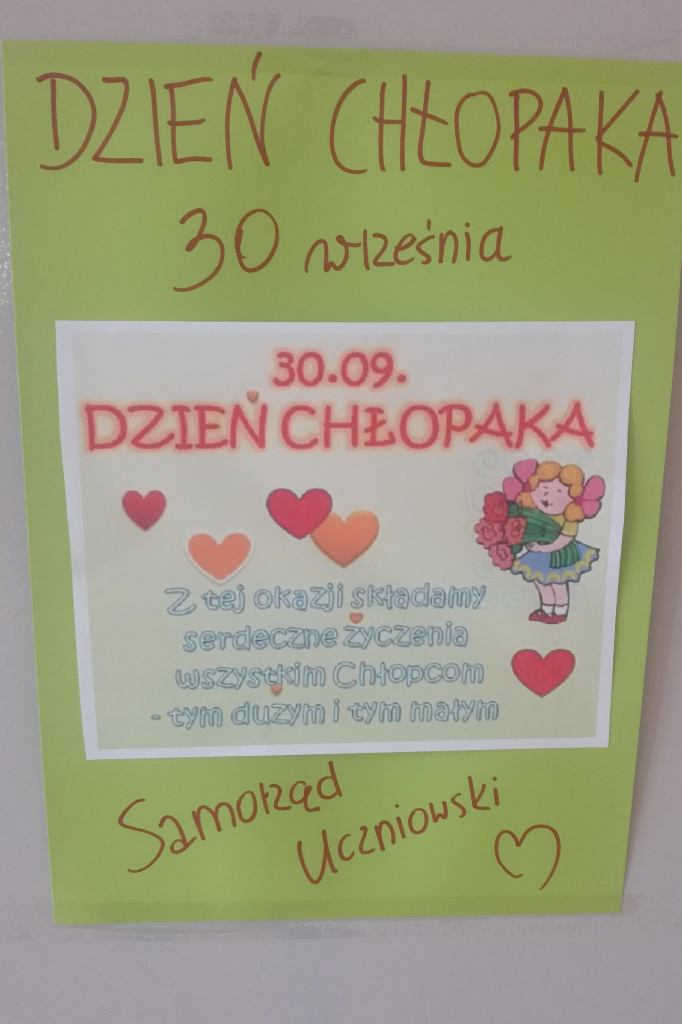 DZIEŃ CHŁOPAKA
30 września
30.09.
DZIEŃ CHŁOPAKA
Z tej okazji składamy
serdeczne życzenia
wszystkim Chłopcom
- tym dużym i tym małym
Samorząd
Uczniowski